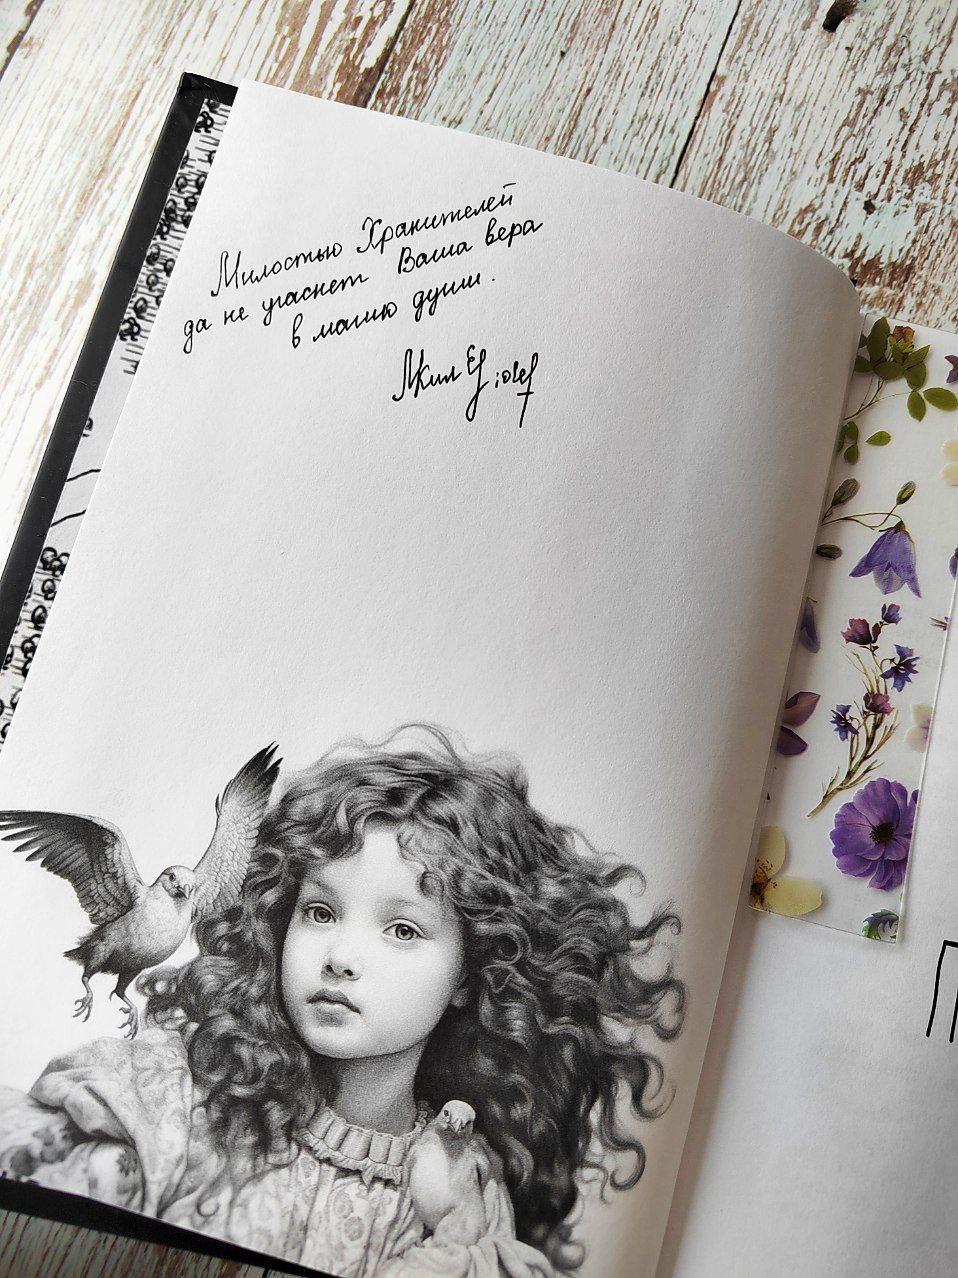 Милостью Хранителей
да не угаснет Ваша вера
в магию души.